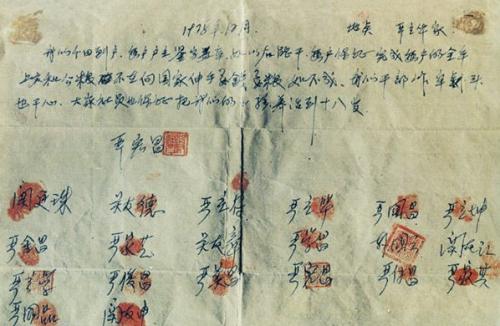 1978年12月. 地点 严立华家
我们分田到户,每户户主签字盖章,如以后能干,每户保证完成每户的全年
上交和公粮,不在向国家伸手要钱要粮,如不成,我们干部作牢杀头
也干心,大家社员也保证把我们的小孩养活到十八岁。
严宏昌
关廷珠 关友德 严立付 严立华 严国昌 严立坤
严金昌 严家芝 关友章 严学昌 韩国云 关友江
严立学 严俊昌 严美昌 严宏昌 严付昌 严家其
严国品 关友申